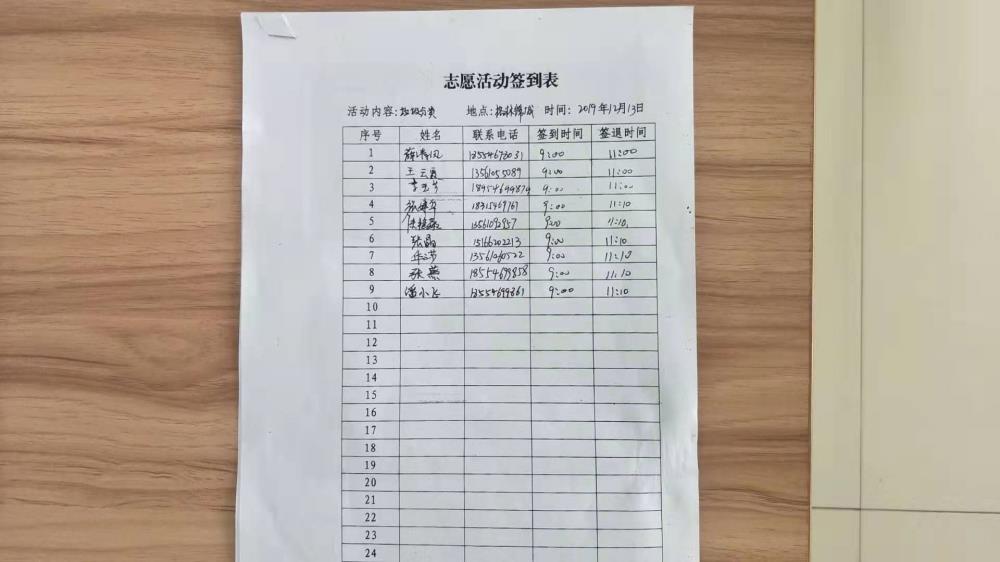 志愿活动签到表
活动内容:垃圾分类 地点:格林锦城 时间: 2019年12月13日
序号 姓名 联系电话 签到时间 签退时间
1 9:00 11:00
2 王云霞 13561055089 9:00 11:00
3 9:00 11:00
4 18315469761 9:00 11:10
5 9:00 11:10
6 张晶 15166202213 9:00 11:10
7 9:00 11:10
8 张燕 18554699858 9:00 11:10
9 潘小飞 9:00 11:10
10
11
12
13
14
15
16
17
18
19
20
21
22
23
24